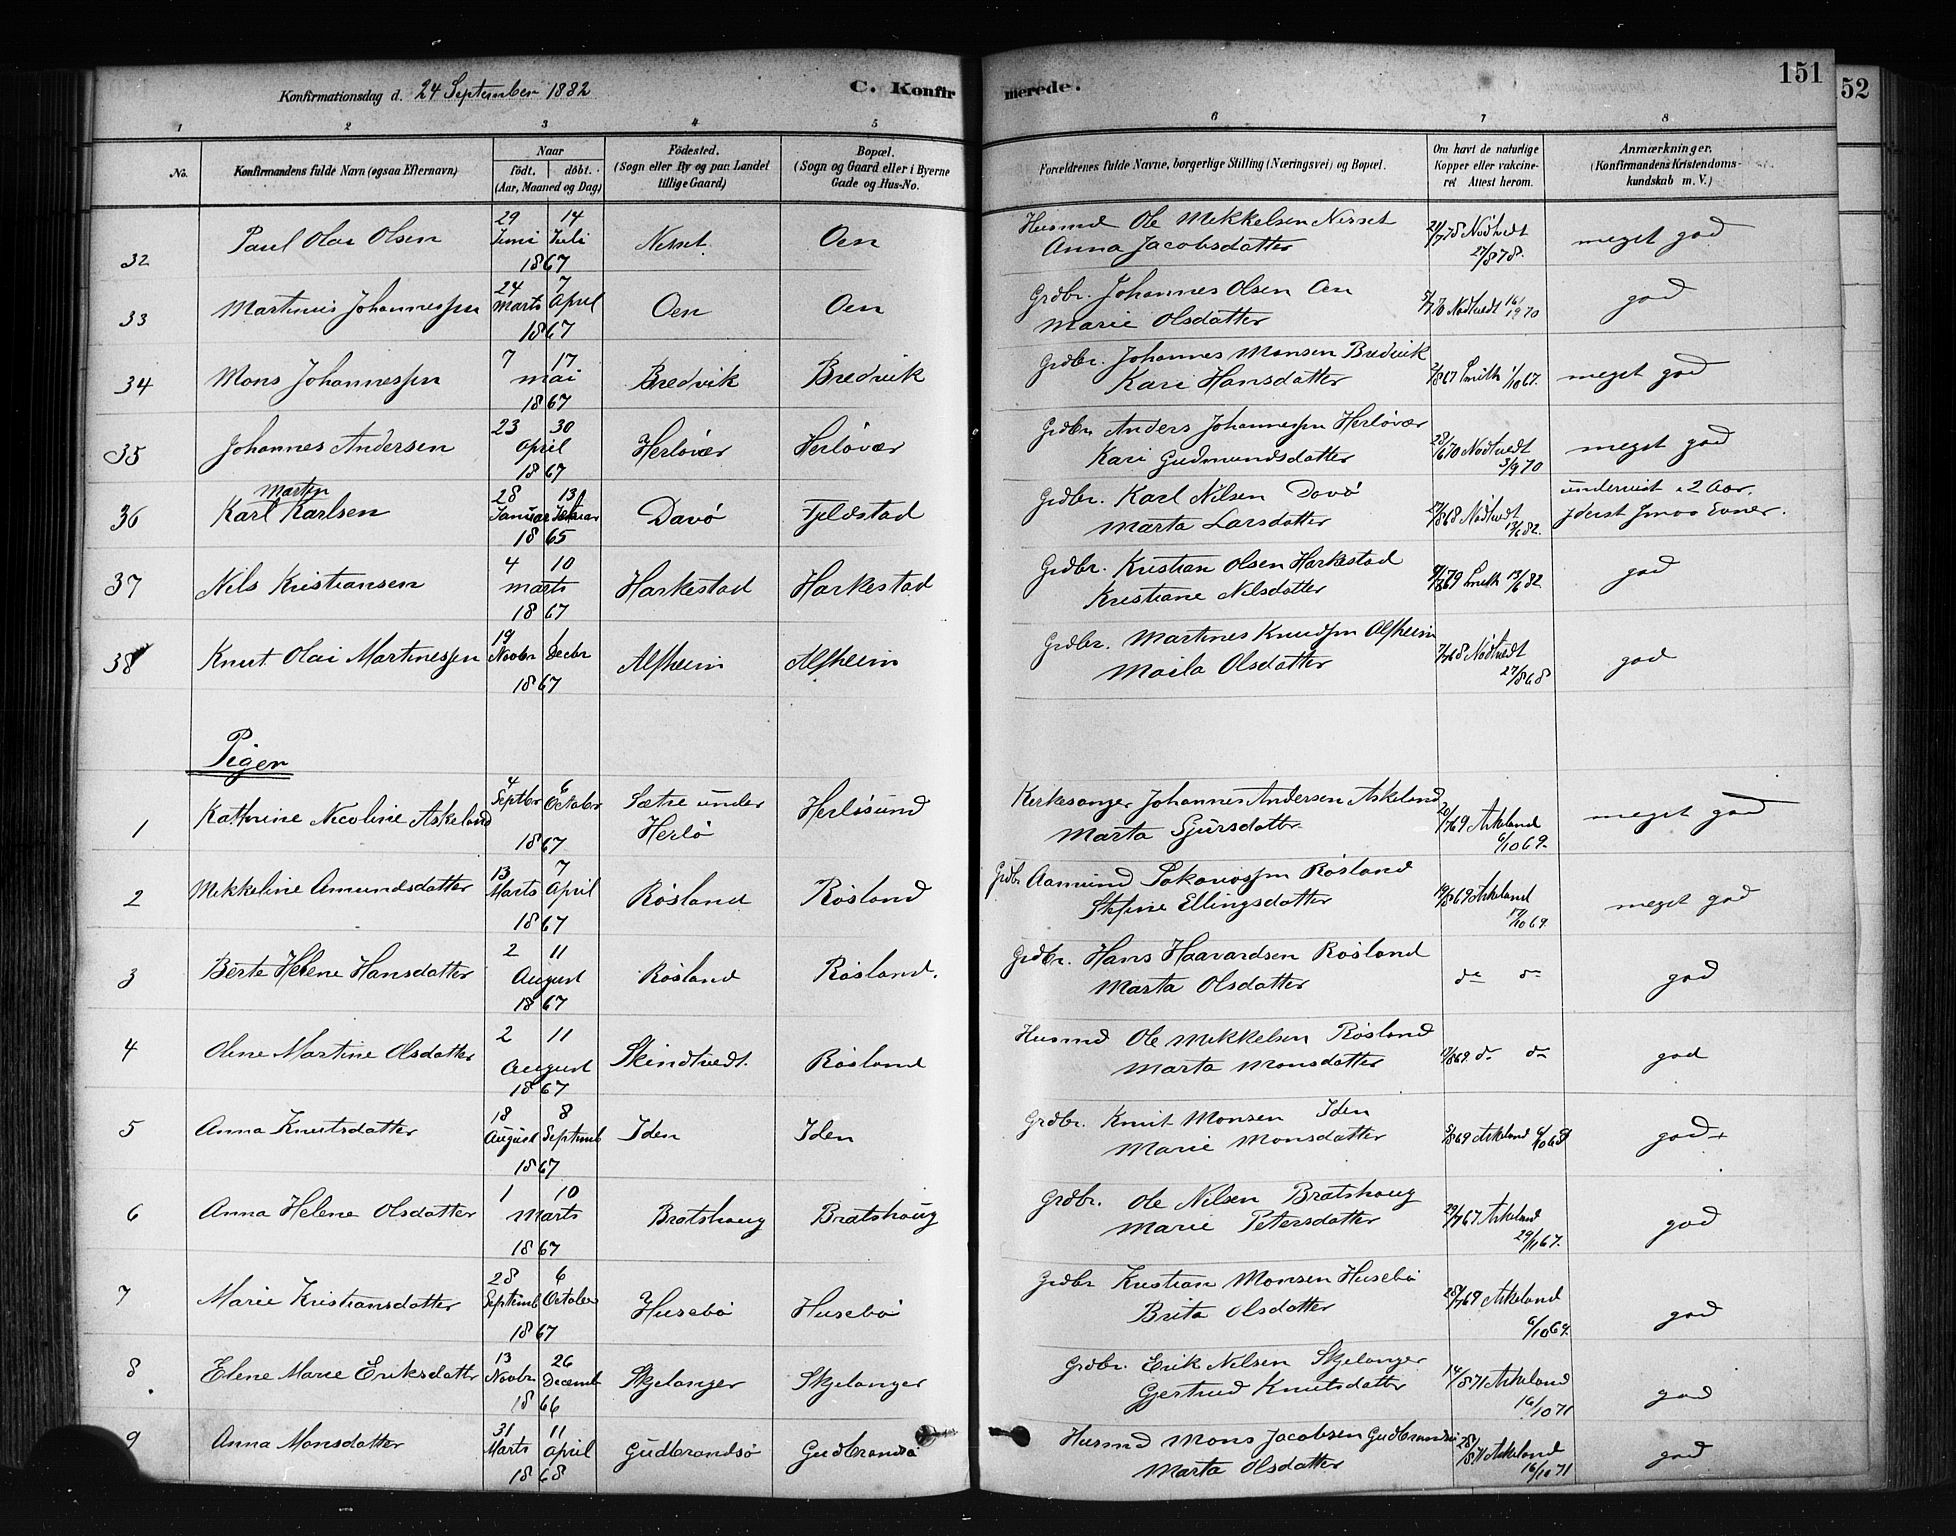 151
52
Konfirmationsdag d. 24 September 1882
C. Konfir merede.
1 2 3 4 5 6 7 8
No.
Konfirmandens fulde Navn (ogsaa Efternavn)
Naar
födt. döbt.
(Aar, Maaned og Dag)
Födested.
(Sogn eller By og paa Landet
tillige Gaard)
Bopæl.
(Sogn og Gaard eller i Byerne
Gade og Hus-No.
Forældrenes fulde Navne, borgerlige Stilling (Næringsvei) og Bopæl.
Om havt de naturlige
Kopper eller vakcine-
ret Attest herom.
Anmærkninger.
(Konfirmandens Kristendoms-
kundskab m. V.)
32 Paul Olai Olsen 29 Juni 14 Juli 1867 Nesset Oen Husmd Ole Mikkelsen Nesset
Anna Jacobsdatter Nödtvedt 27/8 78. meget god
33 Martinus Johannessen 24 Marts 7 April 1867 Oen Oen Grdbr. Johannes Olsen Oen
Marie Olsdatter Nödtvedt god
34 Mons Johannessen 7 17 mai 1867 Bredvik Bredvik Grdbr. Johannes Monsen Bredvik
Kari Hansdatter Smith meget god
35 Johannes Andersen 23 30 April 1867 Herløvær Herløvær Grdbr Anders Johannessen Herløvær
Kari Gudmundsdatter 28/6 70 Nödtvedt 3/9 70 meget god
36 Karl Martin Karlsen 28 Januar 13 1865 Davø Fjeldstad Grdbr. Karl Nilsen Davø
Marta Larsdatter Nödtvedt 13/6 82. undervist i 2 Aar.
yderst smaa Evner.
37 Nils Kristiansen 4 10 marts 1867 Harkestad Harkestad Grdbr. Kristian Olsen Harkestad
Kristiane Nilsdatter Smith 13/6 82 god
38 Knut Olai Martinessen 19 Novbr 1 Decbr 1867 Alfheim Alfheim Grdbr. Martines Knudsen Alfheim
Maila Olsdatter Nödtvedt 27/8 68 god
Piger
1 Kathrine Nicoline Askeland 4 Septbr 6 Octobr 1867 Sætre under
Herlö Herløsund Kirkesanger Johannes Andersen Askeland
Marta Sjursdatter 20/7 69 Askeland 6/10 69. meget god
2 Mikkeline Amundsdatter 13 Marts 7 April 1867 Røsland Røsland Grdbr Aamund Røsland
Stefine Ellingsdatter 19/8 69 Askeland meget god
3 Berte Helene Hansdatter 2 11 August 1867 Røsland Røsland. Grdbr. Hans Haavardsen Røsland
Marta Olsdatter do do god
4 Oline Martine Olsdatter 2 11 August 1867 Skindtvedt. Røsland Husmd Ole Mikkelsen Røsland
Marta Monsdatter do do god
5 Anna Knutsdatter 18 August 8 Septemb 1867 Iden Iden Grdbr. Knut Monsen Iden
Marie Monsdatter Askeland god
6 Anna Helene Olsdatter 1 10 Marts 1867 Bratshaug Bratshaug Grdbr. Ole Nilsen Bratshaug
Marie Petersdatter 29/7 67 Askeland 29/11 67. god
7 Marie Kristiansdatter 28 Septemb 6 October 1867 Husebø Husebø Grdbr Kristian Monsen Husebø
Brita Olsdatter Askeland 6/10 69. god
8 Elene Marie Eriksdatter 13 Novbr 26 Decemb 1866 Skjelanger Skjelanger Grdbr. Erik Nilsen Skjelanger
Gjertrud Knutsdatter 14/8 71 Askeland 16/10 71 god
9 Anna Monsdatter 31 Marts 11 April 1868 Gudbrandsø Gudbrandsø Husmd Mons Jacobsen Gudbrandsø
Marta Olsdatter Askeland 16/10 71 god